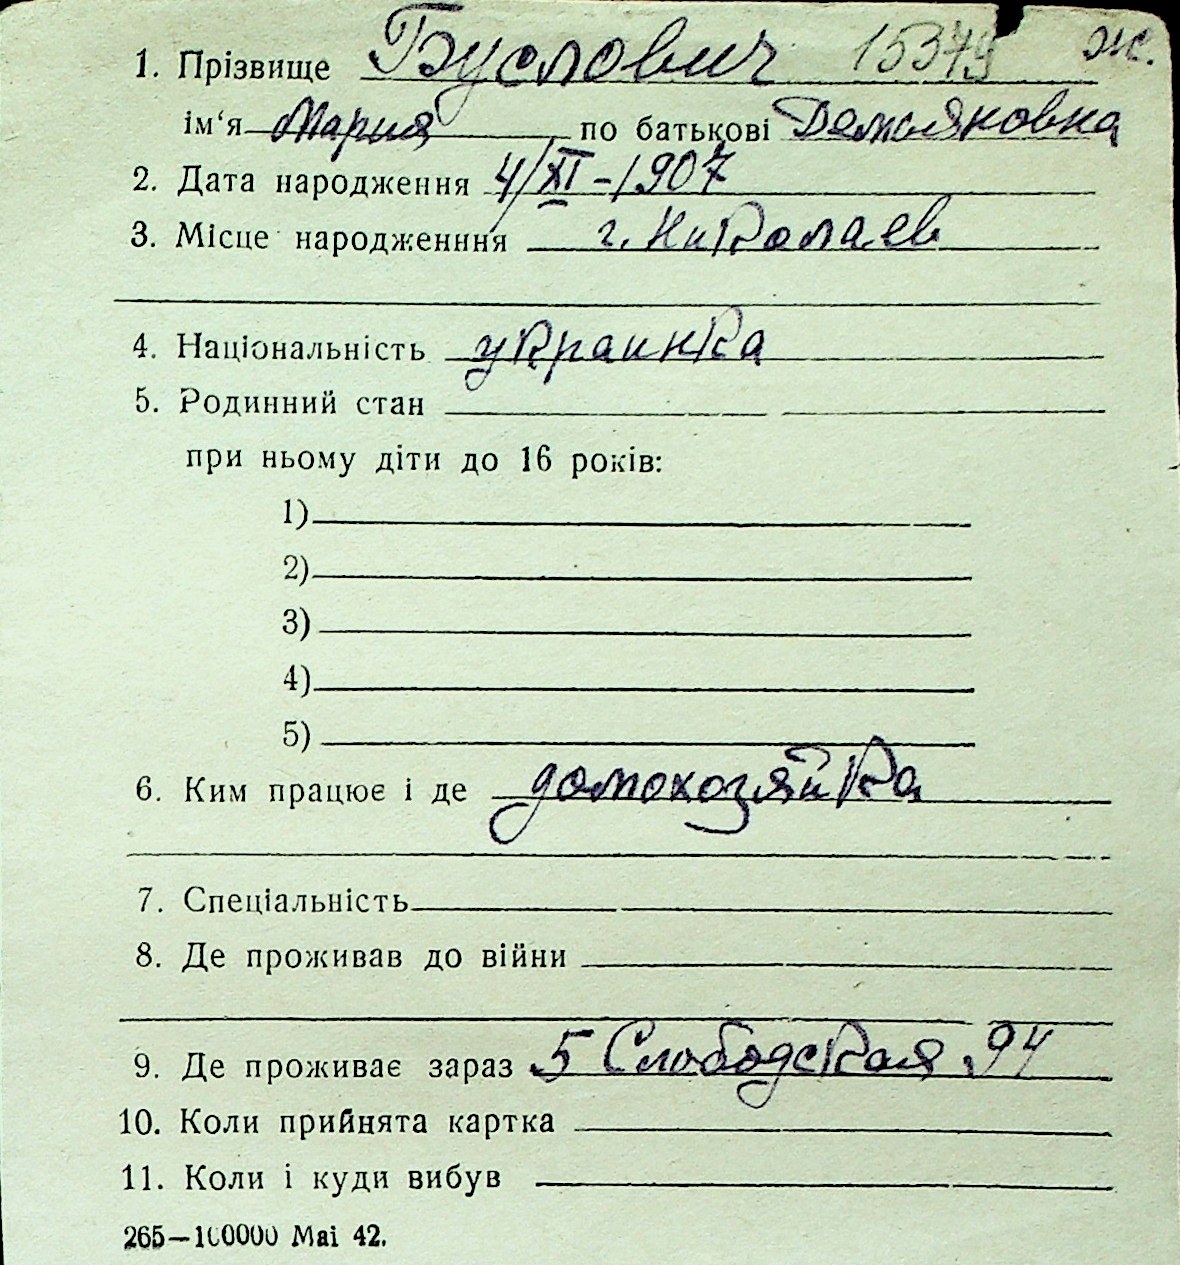 1. Прізвище Буслович 15379 Ж.
ім‘я Мария по батькові Демьяновна
2. Дата народження 4/XI-1907
3. Місце народженння г. Николаев
4. Національність украинка
5. Родинний стан
при ньому діти до 16 років:
1)
2)
3)
4)
5)
6. Ким працює і де домохозяйка
7. Спеціальність
8. Де проживав до війни
9. Де проживає зараз 5 Слободская 94
10. Коли прийнята картка
11. Коли і куди вибув
265—100000 Mai 42.